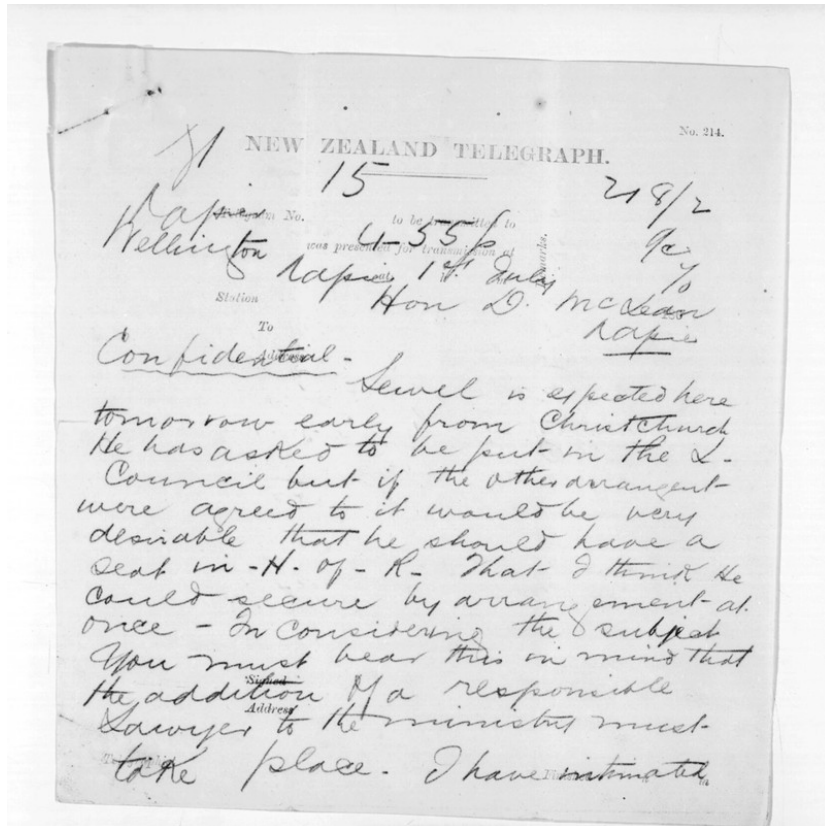 No. 214.
71
NEW ZEALAND TELEGRAPH.
15
218/2
Napier No. to be transmitted to
Wellington was presented for transmission at 4-55 p
Napier 1st July
Hon D. McLean
Station
Napier
To
Confidential -
Sewel is expected here
tomorrow early from Christchurch
He has asked to be put in the L-
Council but if the other arrangent
were agreed to it would be very
desirable that he should have a
seat in - H - of - R - That I think He
could secure by arrangement at
once - In considering the subject
You must bear this in mind that
Signed
the addition of a responsible
Address
Lawyer to the ministry must
take place. I have intimated